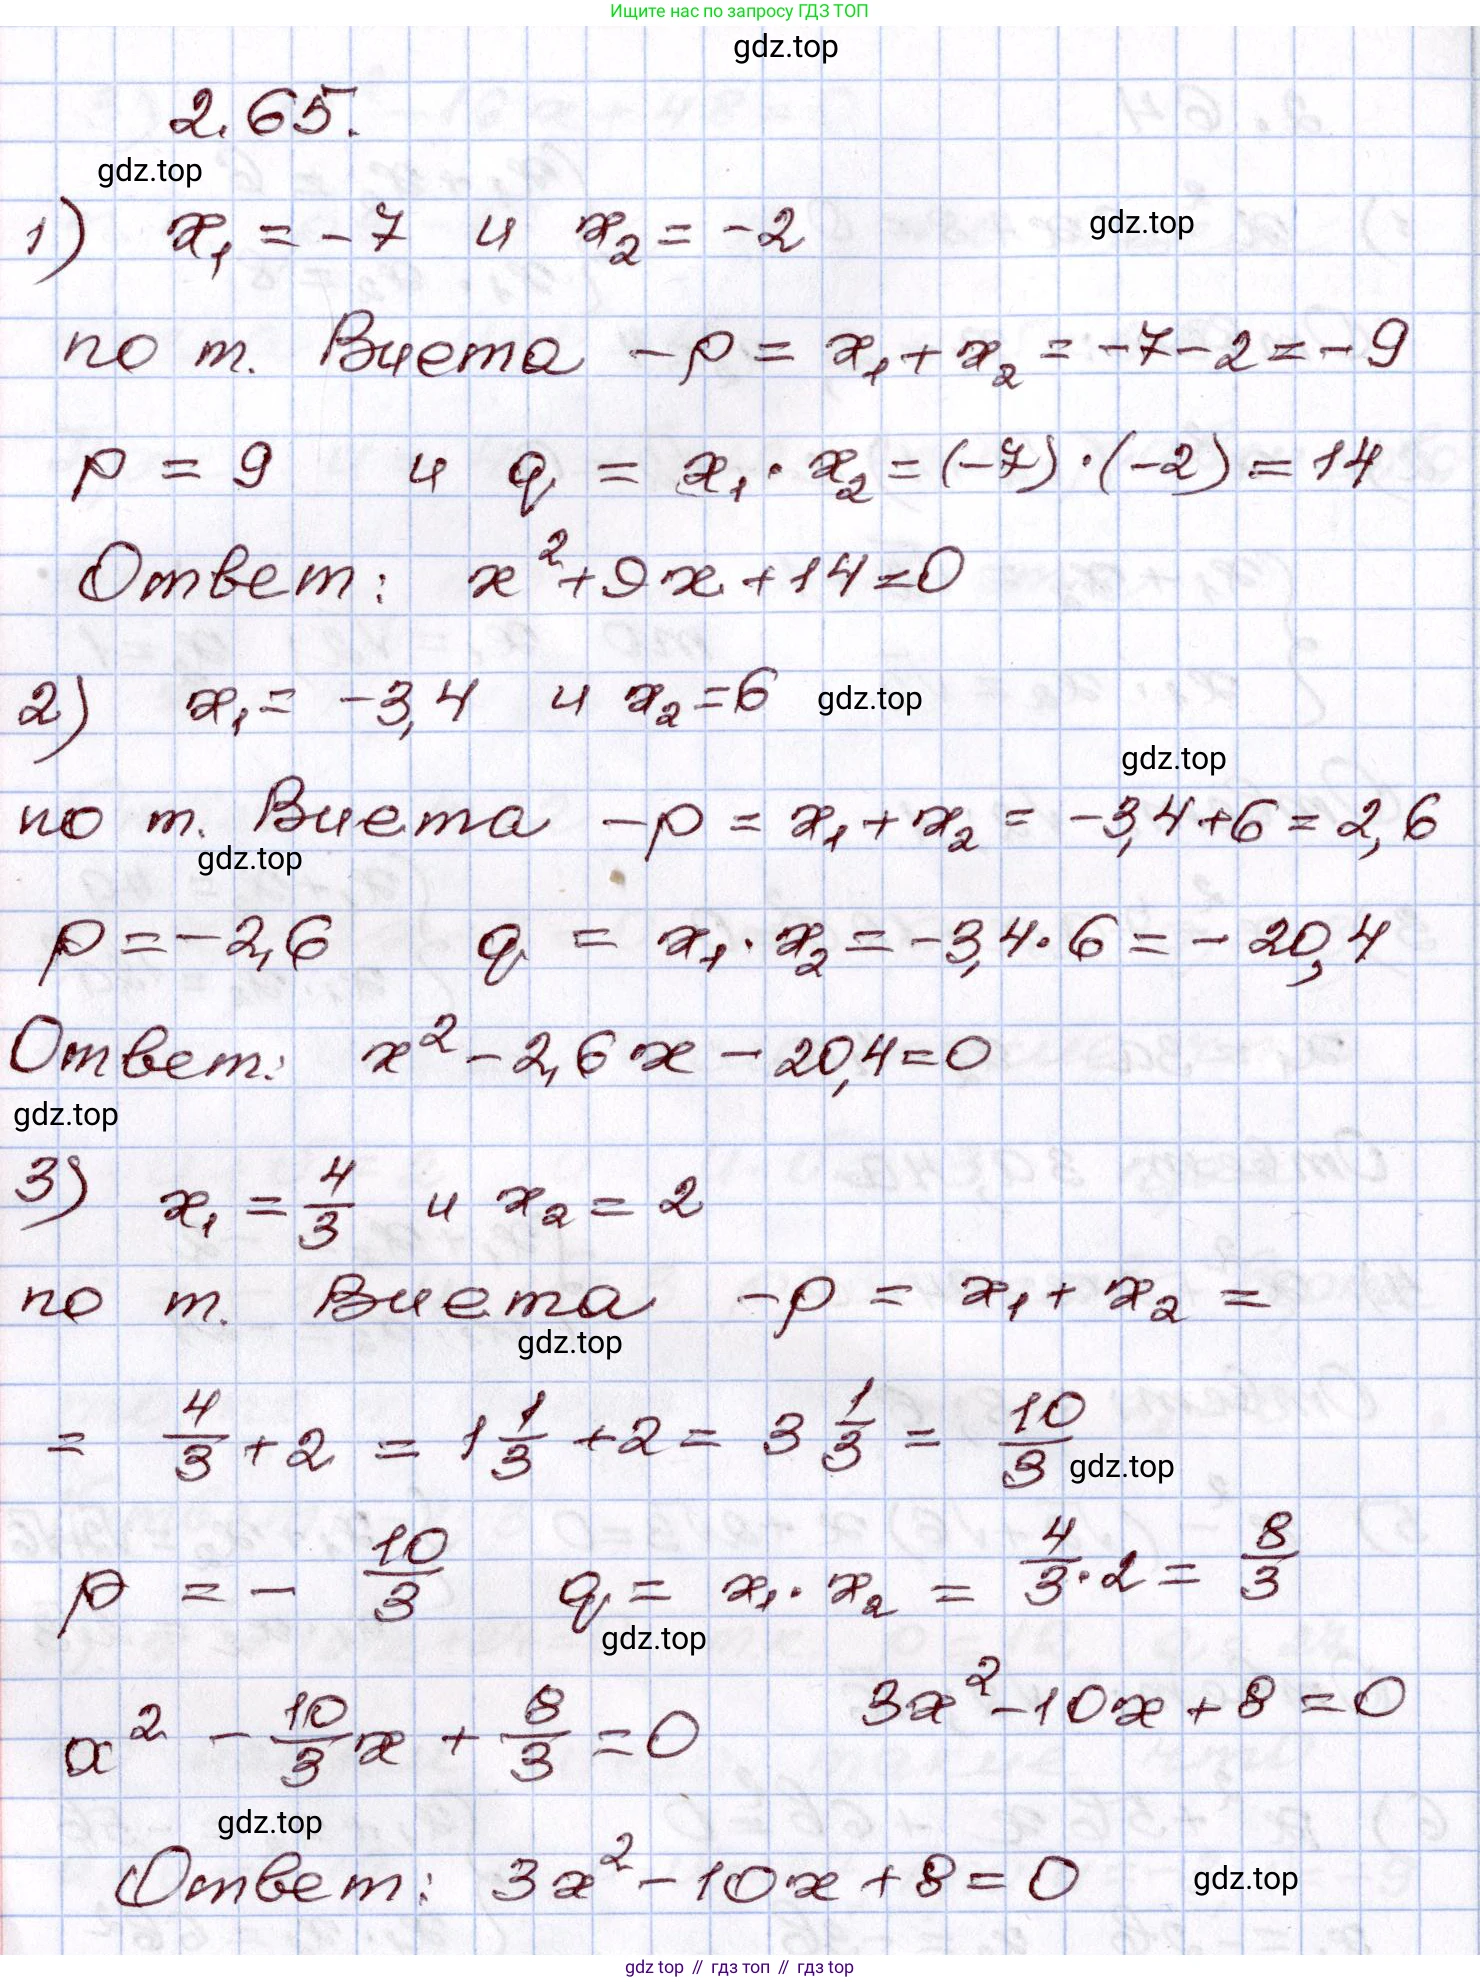 Ищите нас по запросу ГДЗ ТОП
gdz.top
2.65.
gdz.top
1) x₁ = -7 и x₂ = -2 gdz.top
по т. Виета -p = x₁ + x₂ = -7-2 = -9
p = 9 и q = x₁ · x₂ = (-7) · (-2) = 14
Ответ: x² + 9x + 14 = 0
2) x₁ = -3,4 и x₂ = 6 gdz.top
gdz.top
по т. Виета -p = x₁ + x₂ = -3,4+6 = 2,6
gdz.top
p = -2,6 q = x₁ · x₂ = -3,4 · 6 = -20,4
Ответ: x² - 2,6x - 20,4 = 0
gdz.top
3) x₁ = 4/3 и x₂ = 2
по т. Виета -p = x₁ + x₂ =
gdz.top
= 4/3 + 2 = 1 1/3 + 2 = 3 1/3 = 10/3 gdz.top
p = - 10/3 q = x₁ · x₂ = 4/3 · 2 = 8/3
gdz.top
x² - 10/3 x + 8/3 = 0 3x² - 10x + 8 = 0
gdz.top
Ответ: 3x² - 10x + 8 = 0 gdz.top
gdz top // гдз топ // гдз top